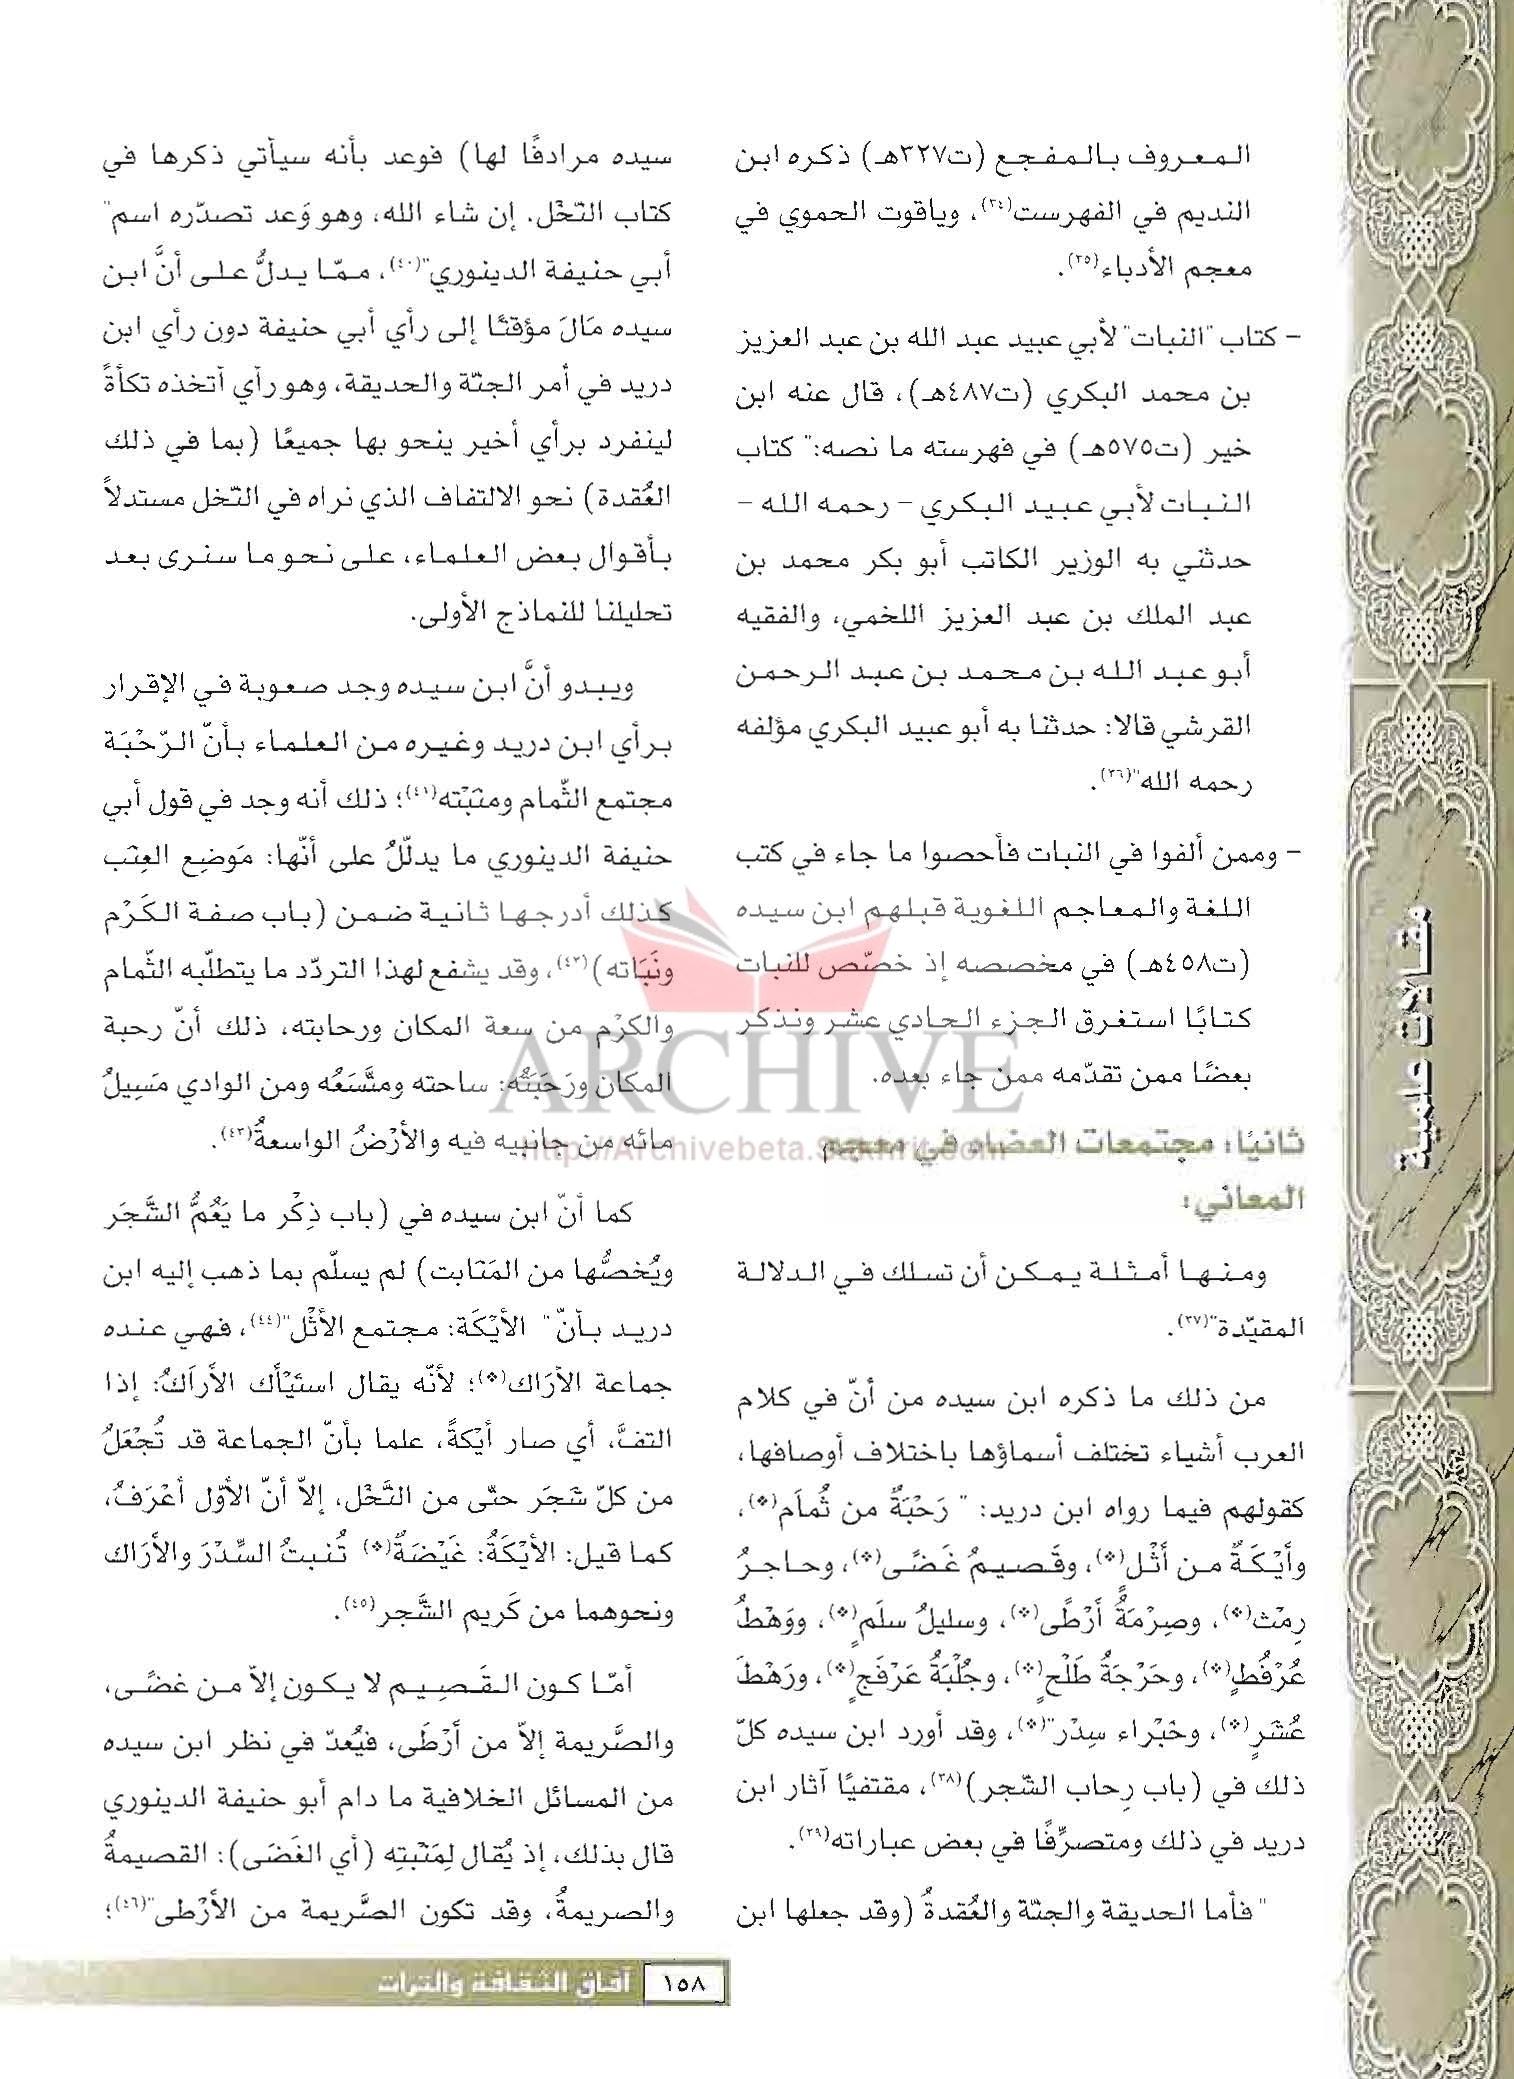 المعروف بالمفجع (ت٣٢٧هـ) ذكره ابن
النديم في الفهرست(٣٤)، وياقوت الحموي في
معجم الأدباء(٣٥).
- كتاب "النبات" لأبي عبيد عبد الله بن عبد العزيز
بن محمد البكري (ت٤٨٧هـ)، قال عنه ابن
خير (ت٥٧٥هـ) في فهرسته ما نصه:" كتاب
النبات لأبي عبيد البكري - رحمه الله -
حدثني به الوزير الكاتب أبو بكر محمد بن
عبد الملك بن عبد العزيز اللخمي، والفقيه
أبو عبد الله بن محمد بن عبد الرحمن
القرشي قالا: حدثنا به أبو عبيد البكري مؤلفه
رحمه الله"(٣٦).
- وممن ألفوا في النبات فأحصوا ما جاء في كتب
اللغة والمعاجم اللغوية قبلهم ابن سيده
(ت٤٥٨هـ) في مخصصه إذ خصّص للنبات
كتابًا استغرق الجزء الحادي عشر ونذكر
بعضًا ممن تقدّمه ممن جاء بعده.
ثانيًا: مجتمعات العضاه في معجم
المعاني:
ومنها أمثلة يمكن أن تسلك في الدلالة
المقيّدة"(٣٧).
من ذلك ما ذكره ابن سيده من أنّ في كلام
العرب أشياء تختلف أسماؤها باختلاف أوصافها،
كقولهم فيما رواه ابن دريد: " رَحْبَةٌ من ثُمام(*)،
وأيْكَةٌ من أثْل(*)، وقَصيمُ غَضًى(*)، وحاجرُ
رِمْث(*)، وصِرْمَةُ أرْطًى(*)، وسليلُ سلَمٍ(*)، ووَهْطُ
عُرْفُطٍ(*)، وحَرْجَةُ طَلْحٍ(*)، وجُلْبَةُ عَرْفَجٍ(*)، ورَهْطَ
عُشَرٍ(*)، وخَبْراء سِدْر"(*)، وقد أورد ابن سيده كلّ
ذلك في (باب رِحاب الشّجر)(٣٨)، مقتفيًا آثار ابن
دريد في ذلك ومتصرِّفًا في بعض عباراته(٣٩).
" فأما الحديقة والجنّة والعُقدةُ (وقد جعلها ابن
سيده مرادفًا لها) فوعد بأنه سيأتي ذكرها في
كتاب النّخْل. إن شاء الله، وهو وَعد تصدّره اسم"
أبي حنيفة الدينوري"(٤٠)، ممّا يدلُّ على أنَّ ابن
سيده مَالَ مؤقتًا إلى رأي أبي حنيفة دون رأي ابن
دريد في أمر الجنّة والحديقة، وهو رأي أتخذه تكأةً
لينفرد برأي أخير ينحو بها جميعًا (بما في ذلك
العُقدة) نحو الالتفاف الذي نراه في النّخل مستدلاً
بأقوال بعض العلماء، على نحو ما سنرى بعد
تحليلنا للنماذج الأولى.
ويبدو أنَّ ابن سيده وجد صعوبة في الإقرار
برأي ابن دريد وغيره من العلماء بأنّ الرّحْبَة
مجتمع الثّمام ومنْبَتْه(٤١)؛ ذلك أنه وجد في قول أبي
حنيفة الدينوري ما يدلّلُ على أنّها: مَوضِع العِنَب
كذلك أدرجها ثانية ضمن (باب صفة الكَرْم
ونَبَاته)(٤٢)، وقد يشفع لهذا التردّد ما يتطلّبه الثّمام
والكرْم من سعة المكان ورحابته، ذلك أنّ رحبة
المكان ورَحَبَتُه: ساحته ومتَّسَعُه ومن الوادي مَسِيلُ
مائه من جانبيه فيه والأرْضُ الواسعةُ(٤٣).
كما أنّ ابن سيده في (باب ذِكْر ما يَعُمُّ الشَّجَر
ويُخصُّها من المَنَابت) لم يسلّم بما ذهب إليه ابن
دريد بأنّ " الأيْكَة: مجتمع الأثْل"(٤٤)، فهي عنده
جماعة الأرَاك(*)؛ لأنّه يقال استَيْأك الأراكُ: إذا
التفَّ، أي صار أيْكةً، علما بأنّ الجماعة قد تُجْعَلُ
من كلّ شَجَر حتّى من النَّخْل، إلاّ أنّ الأوّل أعْرَفُ،
كما قيل: الأيْكَةُ: غَيْضَةٌ(*) تُنبتُ السِّدْرَ والأرَاك
ونحوهما من كَريم الشَّجر(٤٥).
أمّا كون القَصِيم لا يكون إلاّ من غضًى،
والصَّريمة إلاّ من أرْطَى، فيُعدّ في نظر ابن سيده
من المسائل الخلافية ما دام أبو حنيفة الدينوري
قال بذلك، إذ يُقال لِمَنْبتِه (أي الغَضَى): القصيمةُ
والصريمةُ، وقد تكون الصَّريمة من الأرْطى"(٤٦)؛
مقالات علمية
ARCHIVE
http://Archivebeta.Sakhrit.com
١٥٨
آفاق الثقافة والتراث